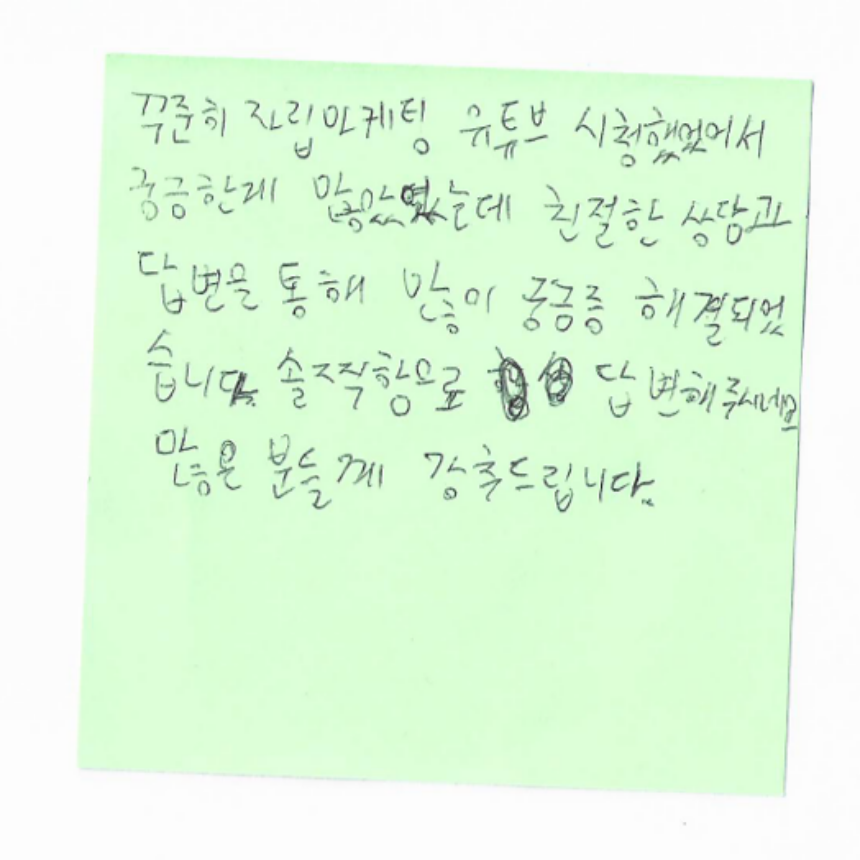 꾸준히 자립마케팅 유튜브 시청했었어서
궁금한게 많았었는데 친절한 상담과
답변을 통해 많이 궁금증 해결되었
습니다. 솔직함으로 답변해주시네요
많은 분들께 강추드립니다.